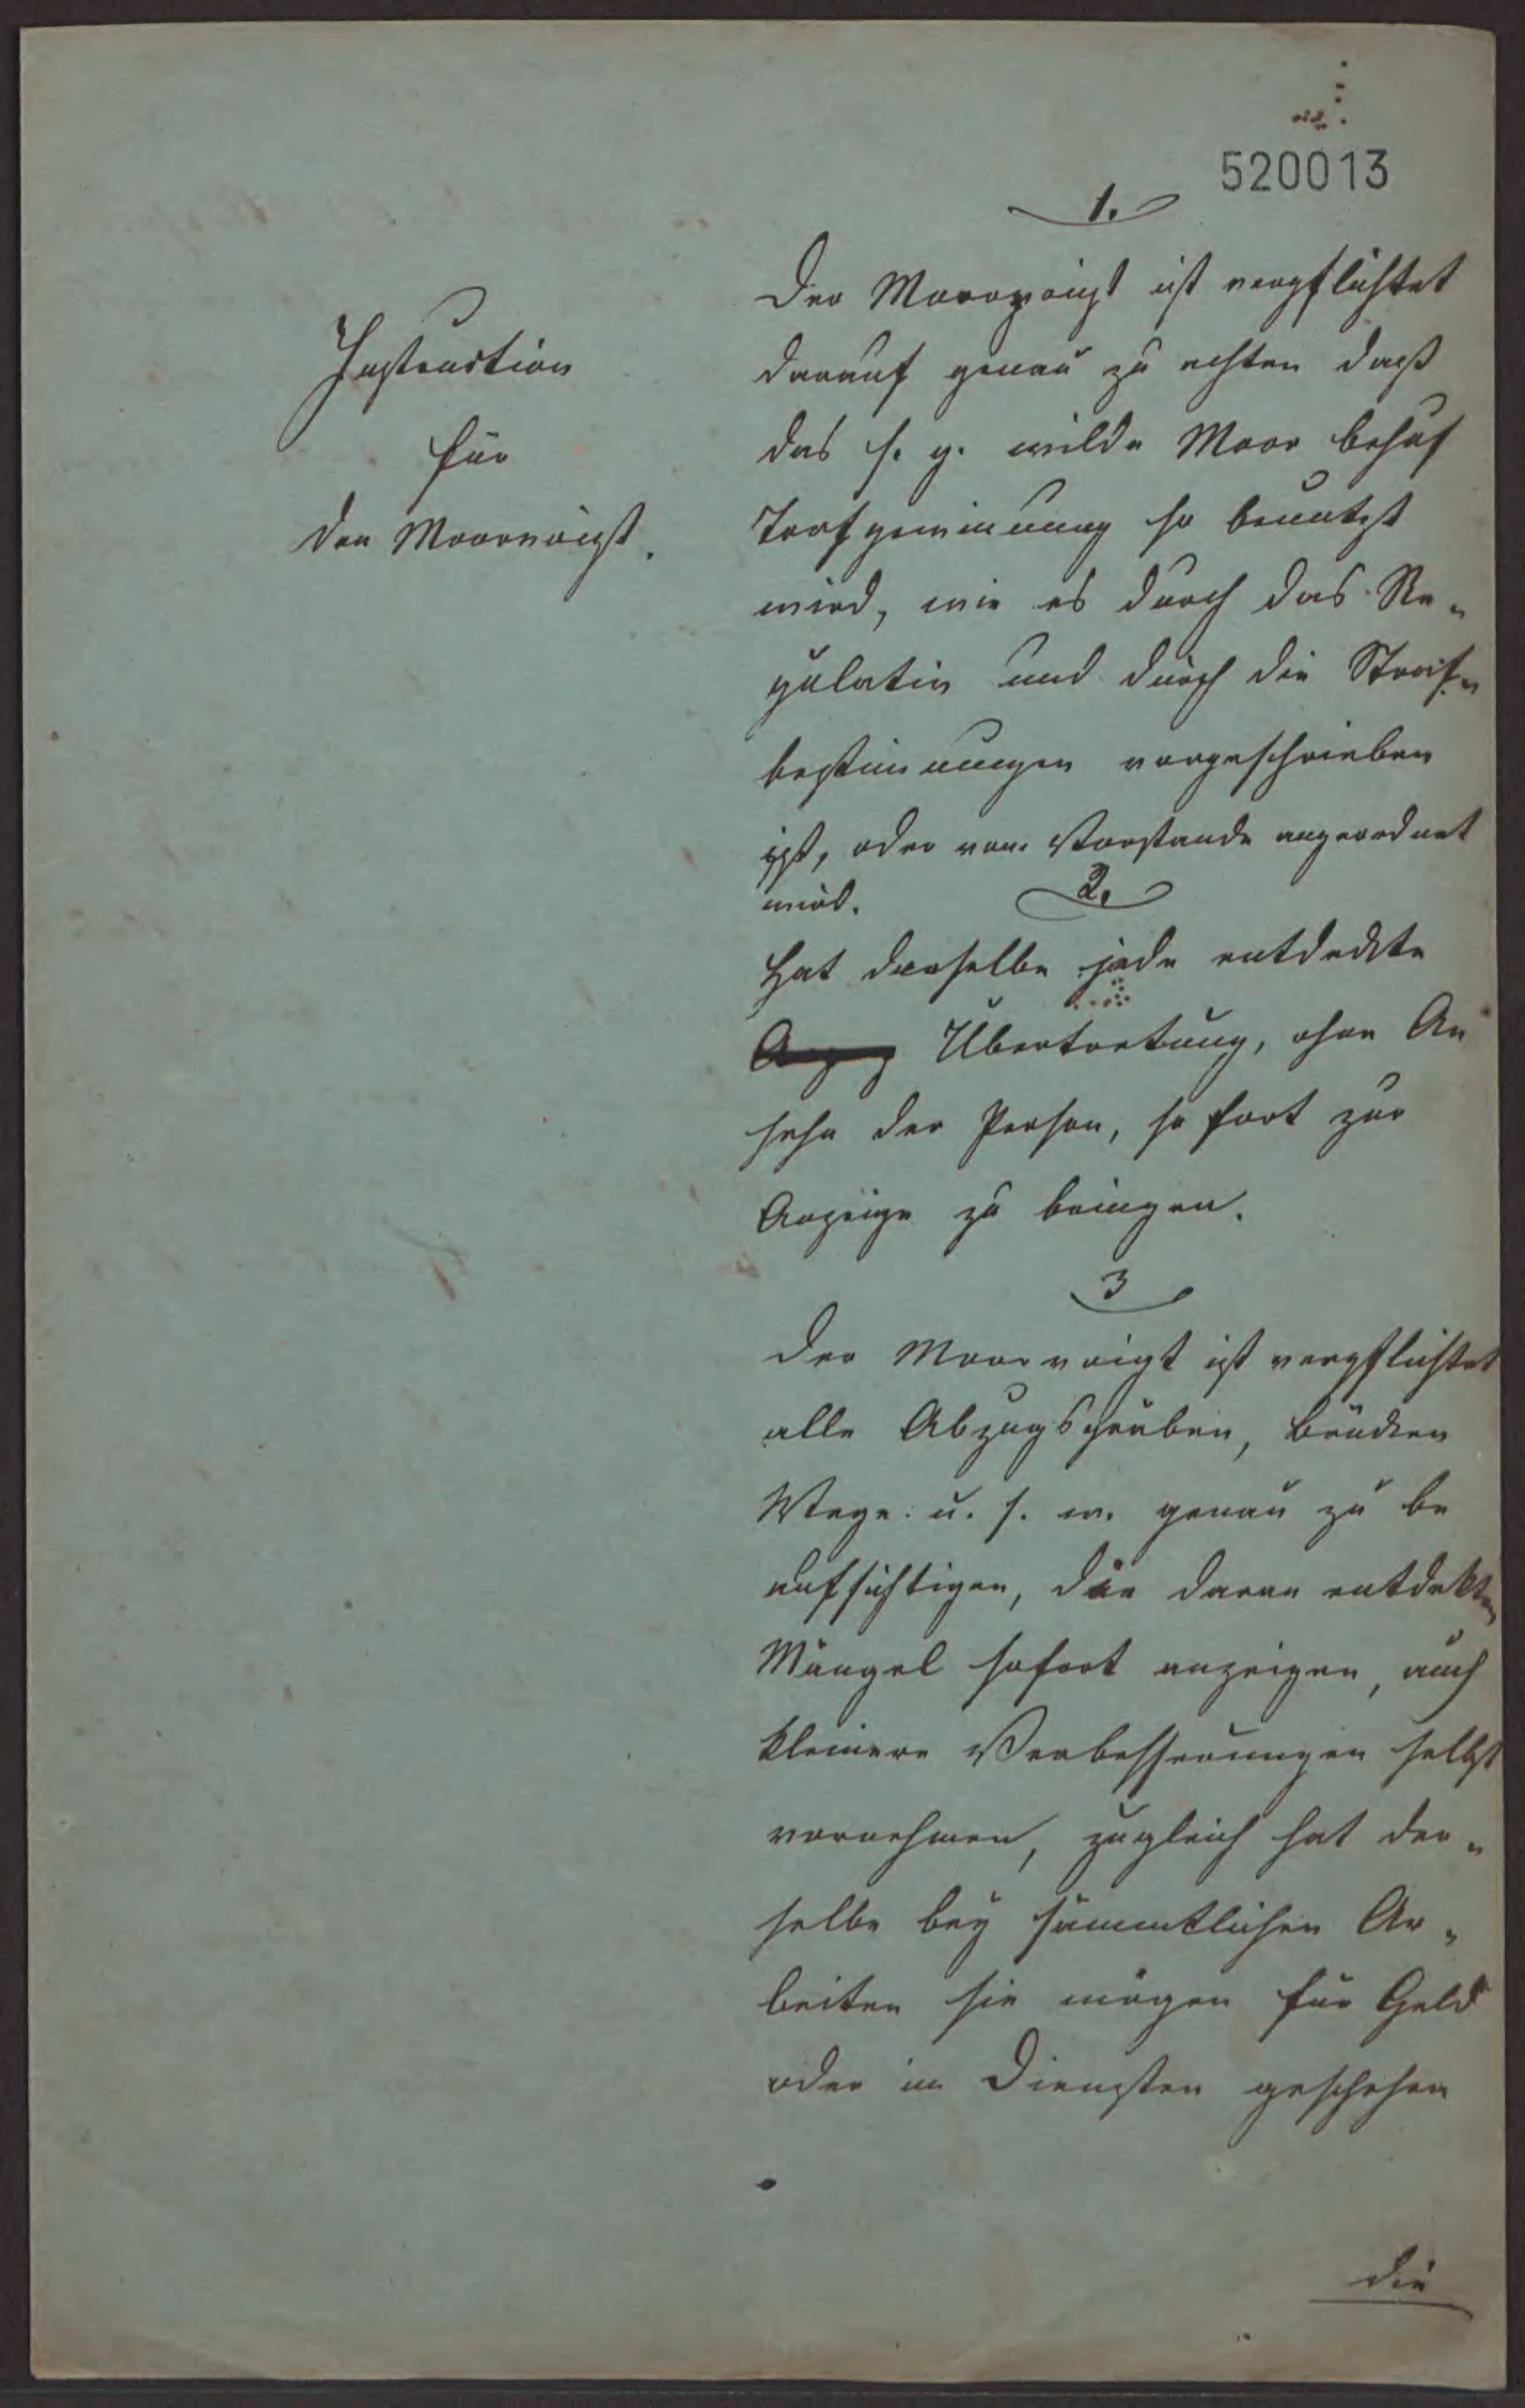 520013
Instruction
für
den Moorvoigt.
1.
Der Moorvoigt ist verpflichtet
darauf genau zu achten daß
das s. g. wilde Moor behuf
Torfgewinnung so benutzt
wird, wie es durch das Re„
gulativ und durch die Straf„
bestimmungen vorgeschrieben
ist, oder vom Vorstande angeordnet
wird.
2.
Hat derselbe jede entdeckte
Übertretung, ohne An
sehn der Person, so fort zur
Anzeige zu bringen.
3
Der Moorvoigt ist verpflichtet
alle Abzugsgräben, Brücken
Wege u. s. w. genau zu be
aufsichtigen, die daran entdekten
Mängel sofort anzeigen, auch
kleinere Verbesserungen selbst
vornehmen, zugleich hat der„
selbe bey sämmtlichen Ar„
beiten sie mögen für Geld
oder in Diensten geschehen
die